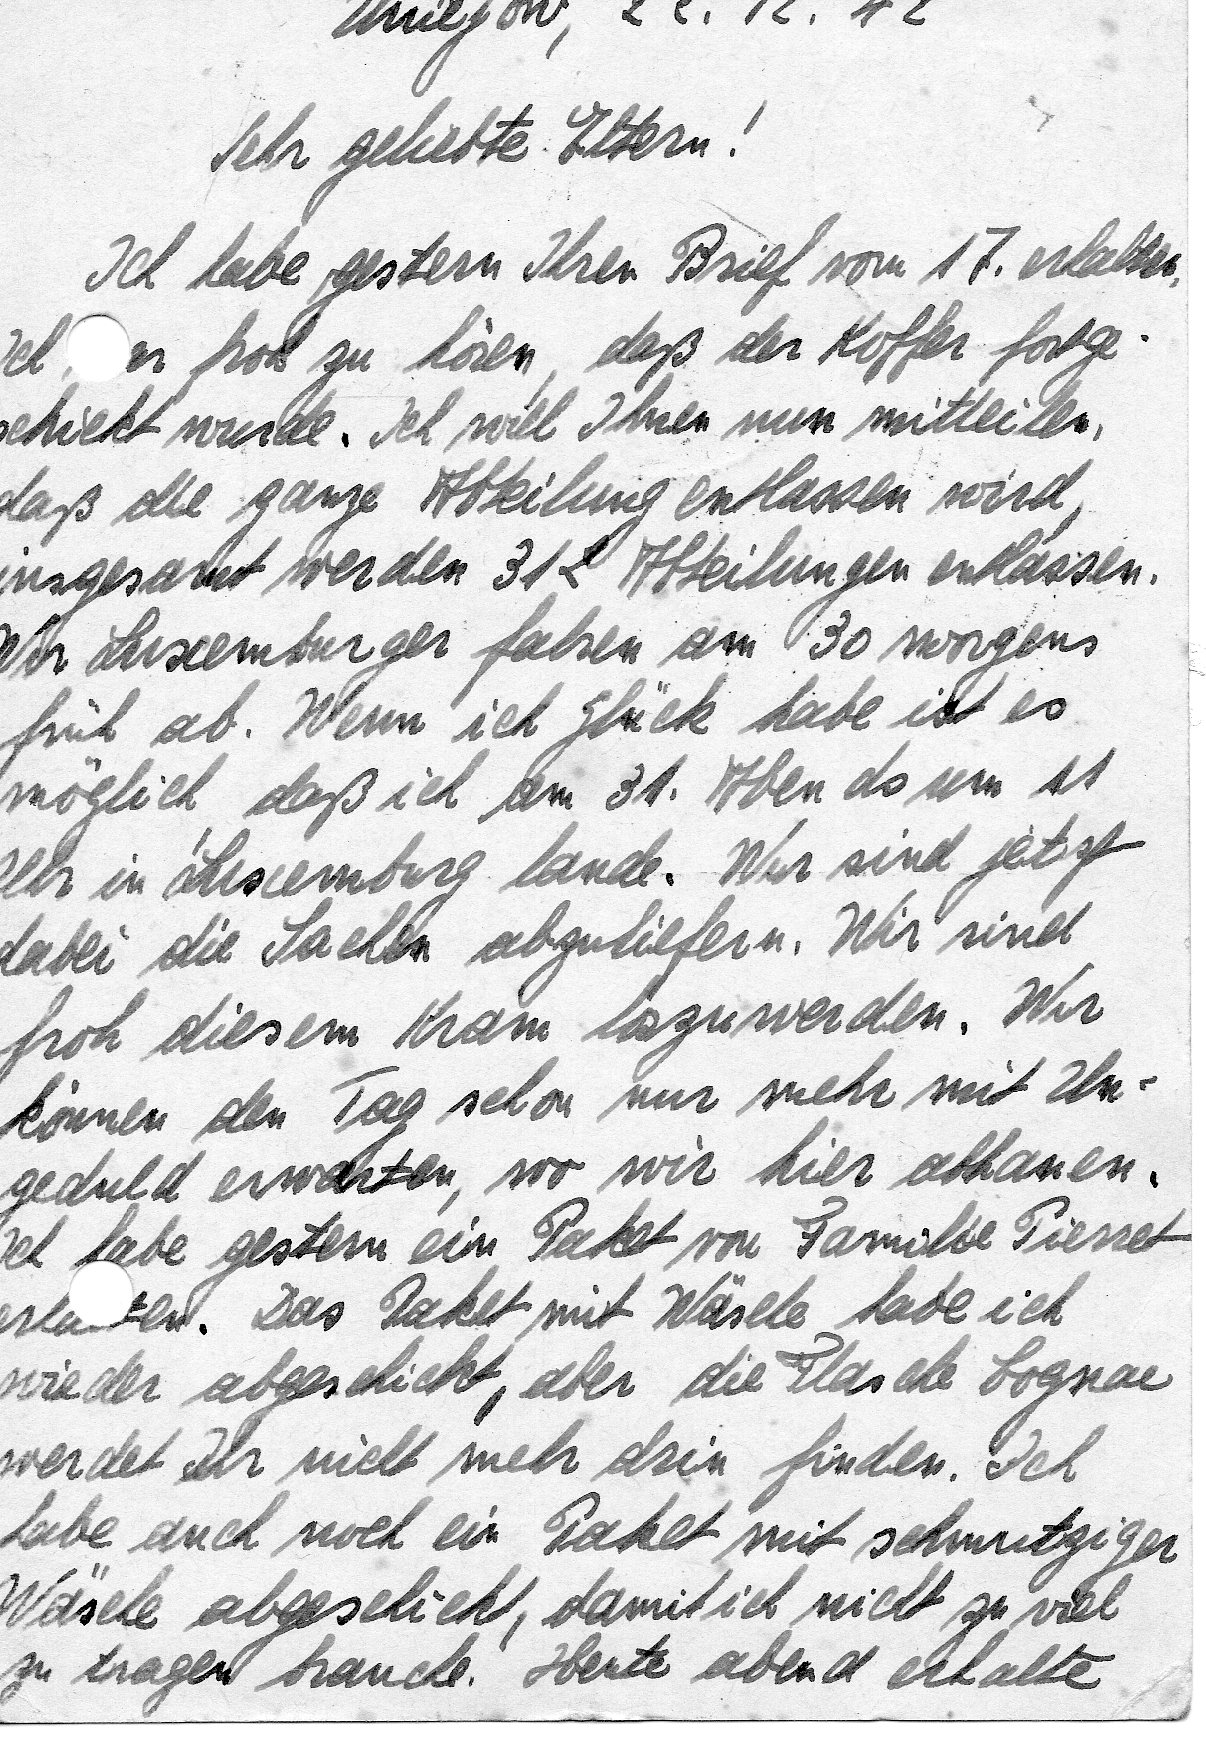 Uniejow, 22. 12. 42
Sehr geliebte Eltern!
Ich habe gestern Ihren Brief vom 17. erhalten.
Ich er froh zu hören, daß der Koffer fortge-
schickt wurde. Ich will Ihnen nun mitteilen,
daß die ganze Abteilung entlassen wird,
insgesamt werden 312 Abteilungen entlassen.
Wir Luxemburger fahren am 30 morgens
früh ab. Wenn ich Glück habe ist es
möglich daß ich am 31. Abends um 11
Uhr in Luxemburg lande. Wir sind jetzt
dabei die Sachen abzuliefern. Wir sind
froh diesem Kram loszuwerden. Wir
können den Tag schon nur mehr mit Un-
geduld erwarten, wo wir hier abhauen.
Ich habe gestern ein Paket von Familie Pierret
erhalten. Das Paket mit Wäsche habe ich
wieder abgeschickt, aber die Flasche Cognac
werdet Ihr nicht mehr drin finden. Ich
habe auch noch ein Paket mit schmutziger
Wäsche abgeschickt, damit ich nicht zu viel
zu tragen brauche. Heute abend erhalte